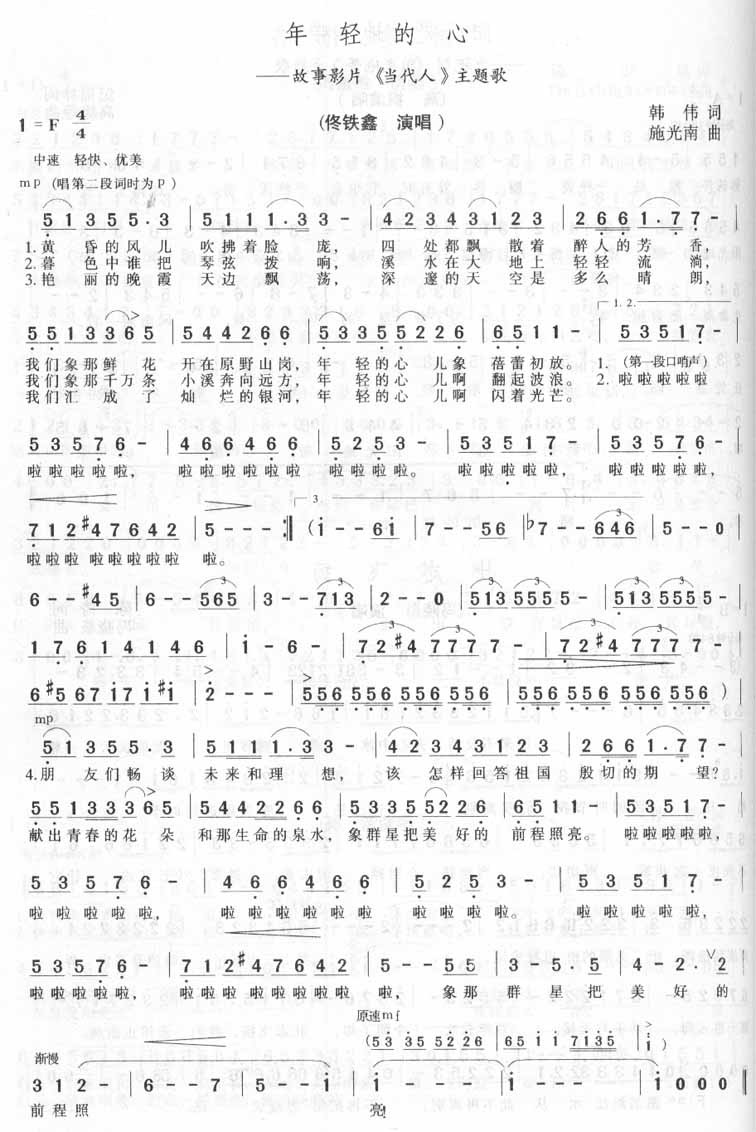 年轻的心
——故事影片《当代人》主题歌
1=F 4/4
(佟铁鑫 演唱)
韩伟词
施光南曲
中速 轻快、优美
mp(唱第二段词时为p)
5 1 3 5 5 5·3 | 5 1 1 1 1·3 3 - | 4 2 3 4 3 1 2 3 | 2 6 6 1·7 7 - |
1.黄昏的风儿 吹拂着脸庞, 四处都飘散着 醉人的芳香,
2.暮色中谁把 琴弦拨响, 溪水在大地上 轻轻流淌,
3.艳丽的晚霞 天边飘荡, 深邃的天空是 多么晴朗,
1.2.
5 5 1 3 3 6 5 | 5 4 4 2 6 6 | 5 3 3 5 5 2 2 6 | 6 5 1 1 - | 5 3 5 1 7 - |
我们象那鲜花 开在原野山岗, 年轻的心儿象 蓓蕾初放。 1.(第一段口哨声)
我们象那千万条 小溪奔向远方, 年轻的心儿啊 翻起波浪。 2.啦啦啦啦啦
我们汇成了 灿烂的银河, 年轻的心儿啊 闪着光芒。
5 3 5 7 6 - | 4 6 6 4 6 6 | 5 2 5 3 - | 5 3 5 1 7 - | 5 3 5 7 6 - |
啦啦啦啦啦, 啦啦啦啦啦啦 啦啦啦啦。 啦啦啦啦啦, 啦啦啦啦啦,
3.
7 1 2 #4 7 6 4 2 | 5 - - - :‖ (i - - 6i | 7 - - 56 | b7 - - 646 | 5 - - 0 |
啦啦啦 啦啦啦啦啦 啦。
6 - - #45 | 6 - - 565 | 3 - - 713 | 2 - - 0 | 513 555 5 - | 513 555 5 - |
1 7 6 1 4 1 4 6 | i - 6 - | 72 #4 7 7 7 7 - | 72 #4 7 7 7 7 - |
6 #5 6 7 i 7 i #i | 2 - - - | 556 556 556 556 | 556 556 556 556) |
mp
5 1 3 5 5·3 | 5 1 1 1·3 3 - | 4 2 3 4 3 1 2 3 | 2 6 6 1·7 7 - |
4.朋友们畅谈 未来和理想, 该怎样回答祖国 殷切的期望?
5 5 1 3 3 3 6 5 | 5 4 4 2 2 6 6 | 5 3 3 5 5 2 2 6 | 6 5 1 - | 5 3 5 1 7 - |
献出青春的花朵 和那生命的泉水, 象群星把美好的 前程照亮。 啦啦啦啦啦,
5 3 5 7 6 - | 4 6 6 4 6 6 | 5 2 5 3 - | 5 3 5 1 7 - |
啦啦啦啦啦, 啦啦啦啦啦啦 啦啦啦啦。 啦啦啦啦啦,
5 3 5 7 6 - | 7 1 2 #4 7 6 4 2 | 5 - 5 5 | 3 - 5·5 | 4 2 - 2·2 |
啦啦啦啦啦, 啦啦啦啦啦啦啦啦 啦, 象那群星把美好的
原速mf
(53 35 52 26 | 65 1 1 7135 | i)
渐慢
3 1 2 - | 6 - - 7 | 5 - - - | 1 - - - | 1 - - - | 1 0 0 0 ‖
前程照 亮!